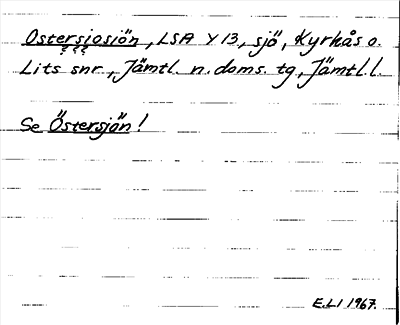 Ostersiosiön, LSA Y 13, sjö, Kyrkås o.
Lits snr., Jämtl. n. doms. tg, Jämtl.l.
Se Östersjön!
E.LI 1967.